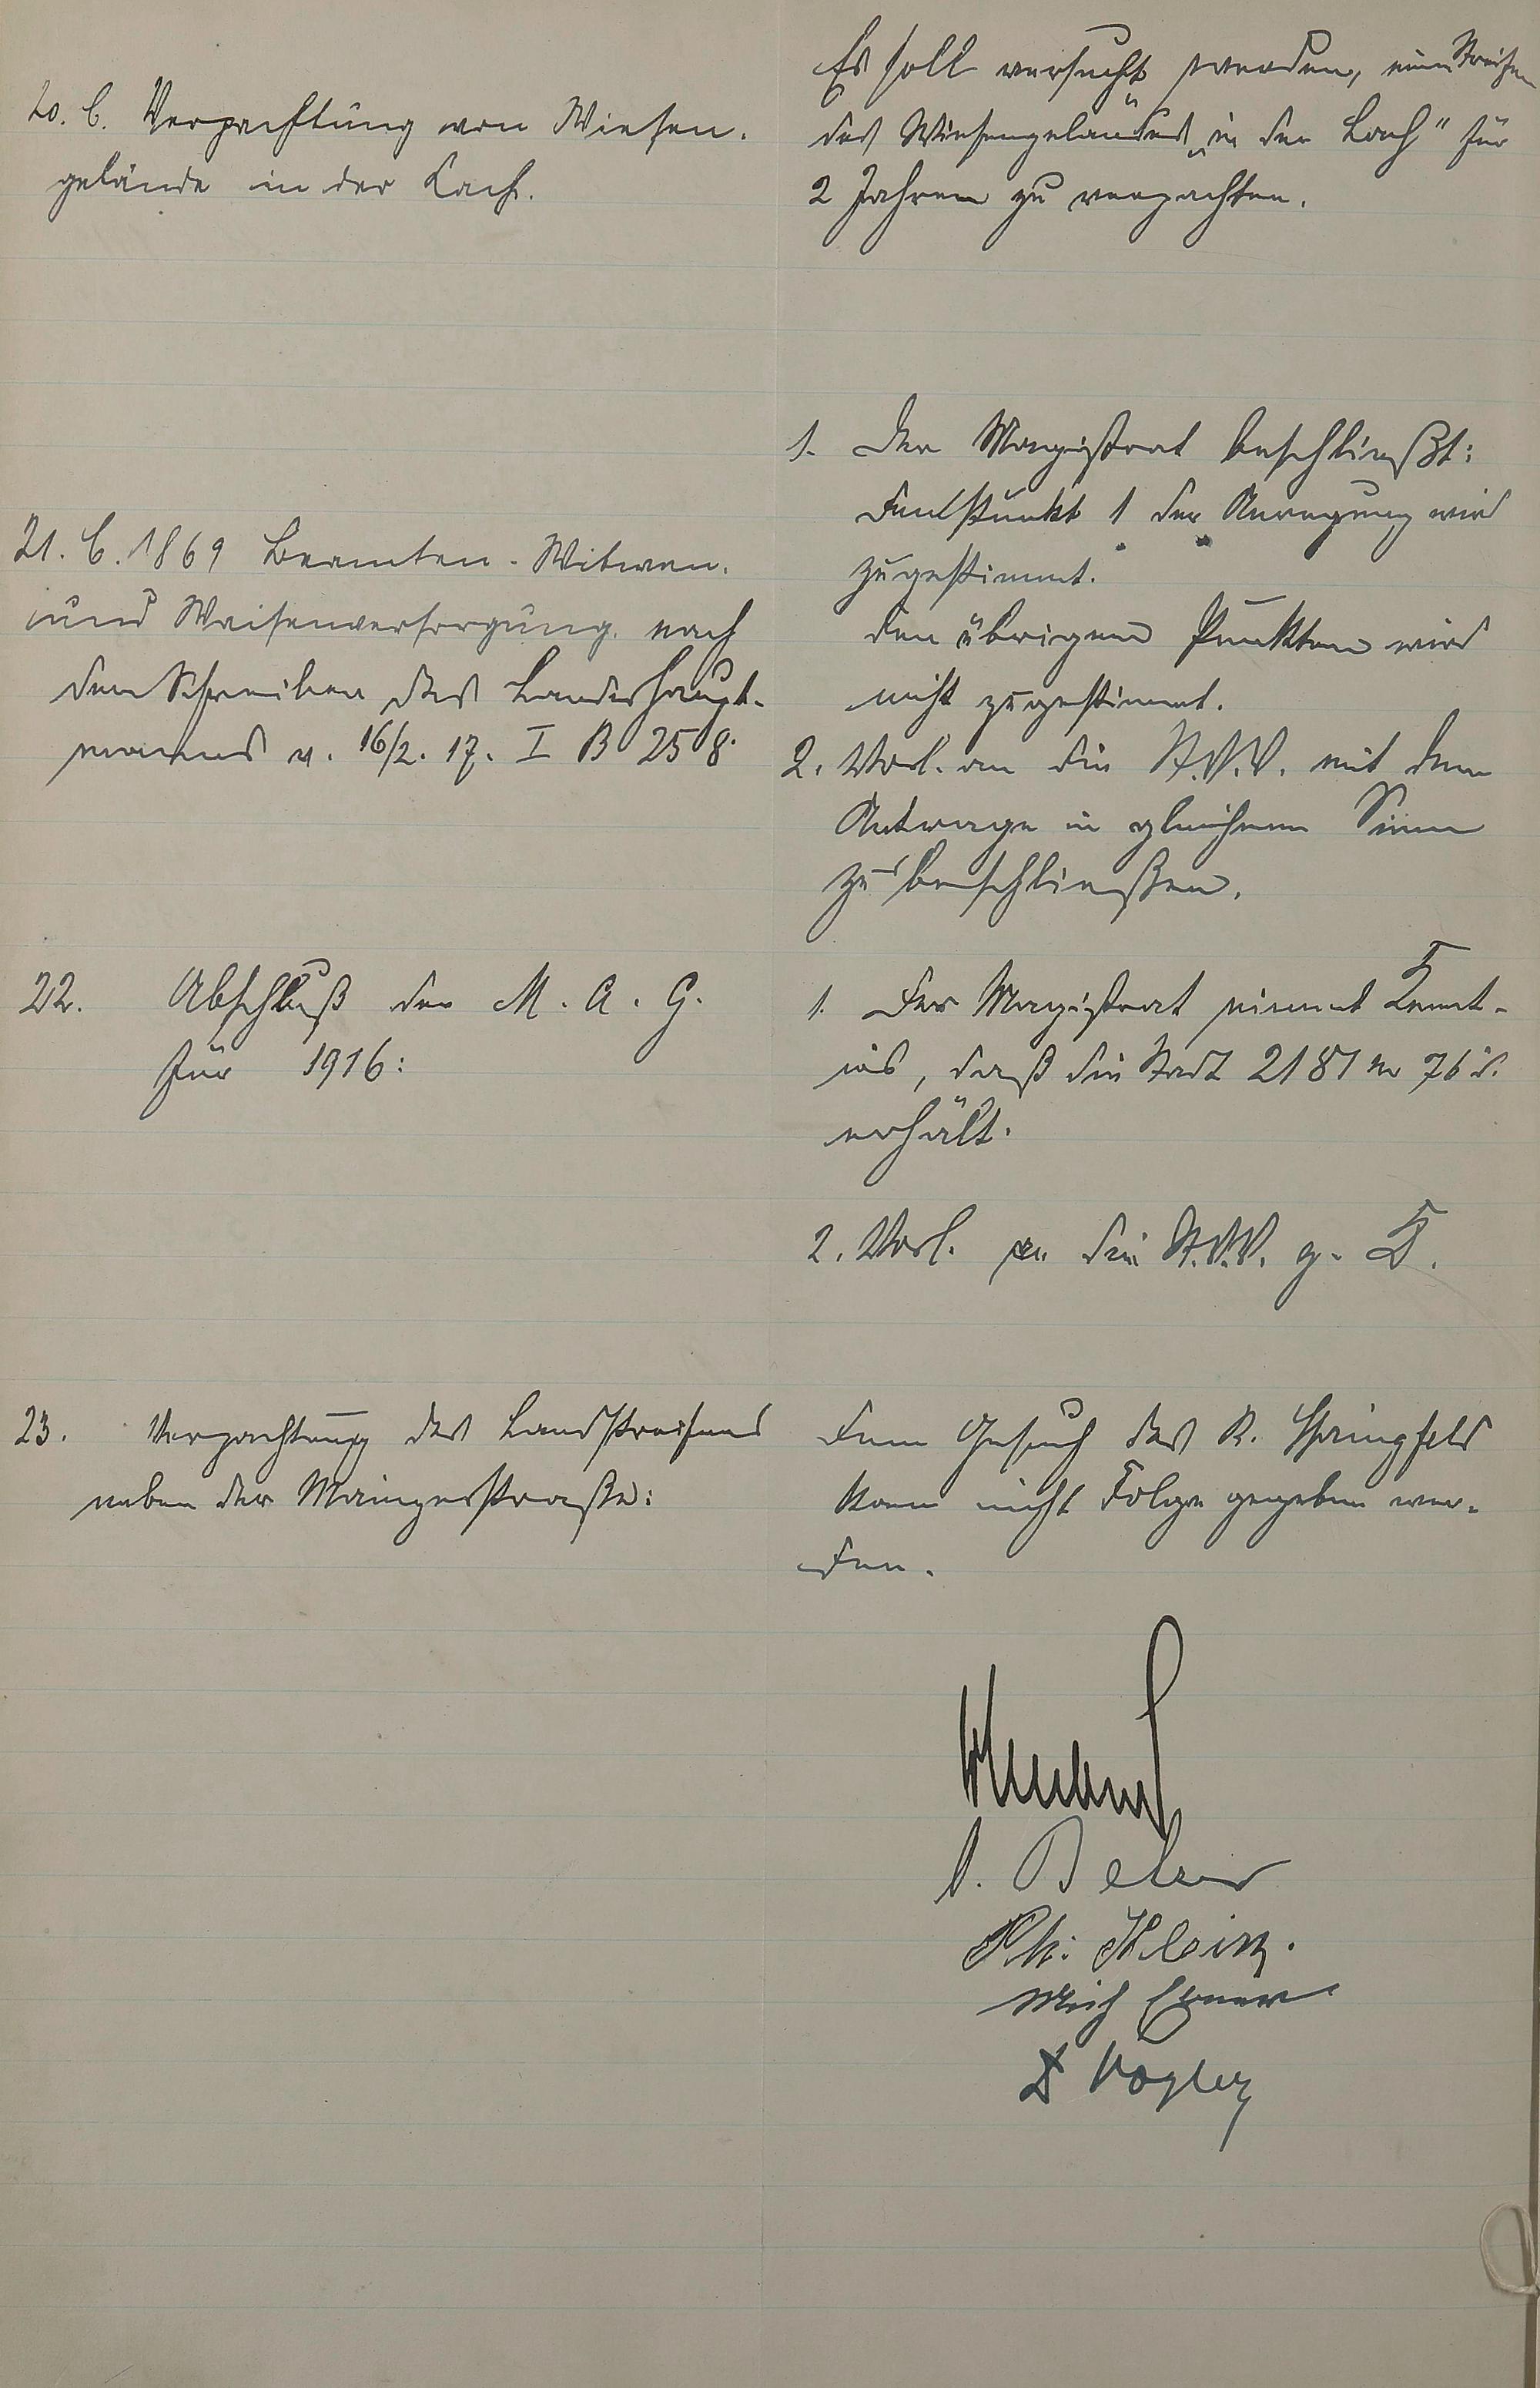 20. C. Verpachtung von Wiesen-
gelände in der Lach.
Es soll versucht werden, einen Streifen
des Wiesengeländes „in der Lach" für
2 Jahren zu verpachten.
21. C. 1869 Beamten-Witwen-
und Waisenversorgung nach
dem Schreiben des Landeshaupt-
manns v. 16/2. 17. I B 258.
1. Der Magistrat beschließt:
dem Punkt 1 der Anregung wird
zugestimmt.
den übrigen Punkten wird
nicht zugestimmt.
2. Vorl. an die St.V.V. mit dem
Antrage in gleichem Sinne
zu beschließen.
22. Abschluß der M. A. G.
für 1916:
1. Der Magistrat nimmt Kennt-
nis, daß die Stadt 2181 M 76 d.
erhält.
2. Vorl. an die St.V.V. z. K.
23. Verpachtung des Landstreifens
neben der Mainzerstraße:
Dem Gesuch des R. Springfeld
kann nicht Folge gegeben wer-
den.
Ph. Klein.